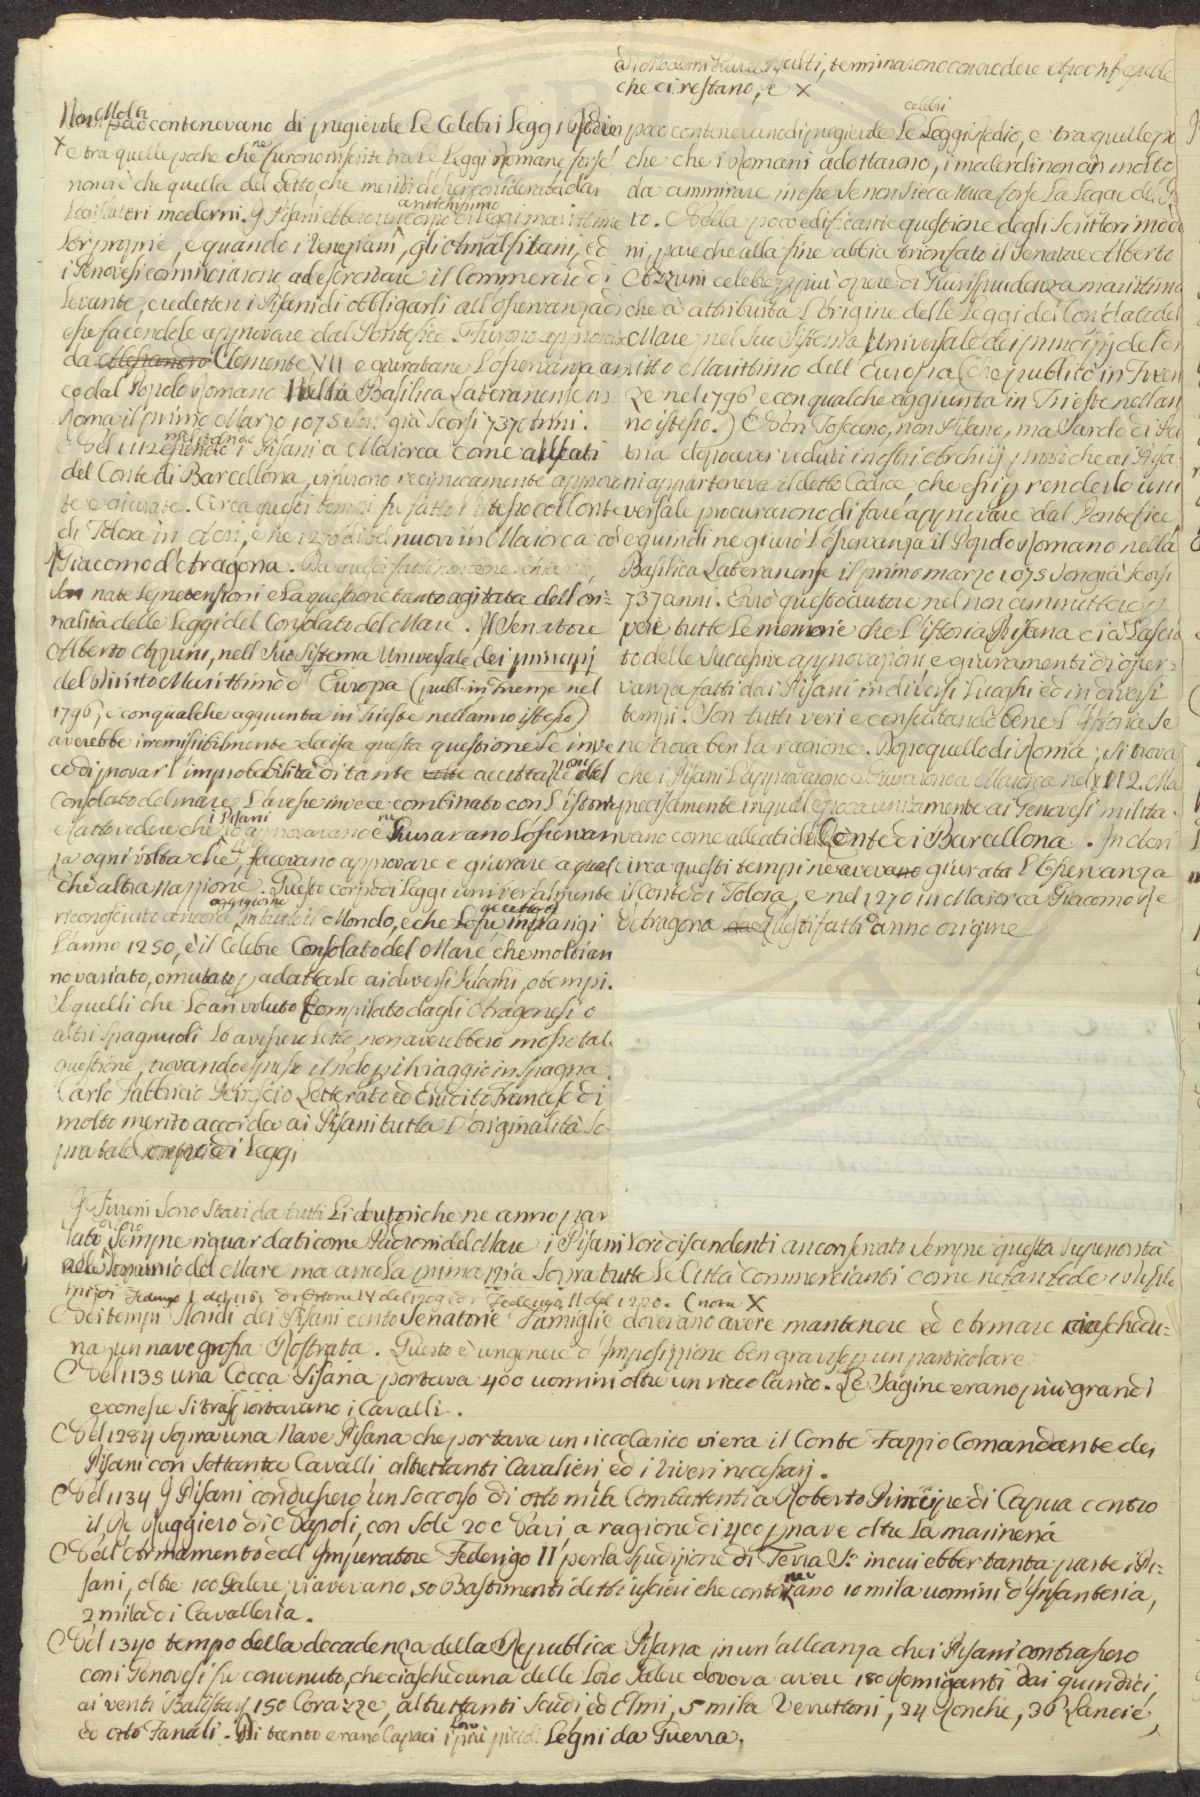 di Moderni Giureconsulti, terminarono con credere Apocrife quelle
che ci restano, e X
Molti
Non poco contenevano di pregievole le Celebri Leggi Rodie
X e tra quelle poche che ne furono inserite tra le Leggi Romane forse
non vi è che quella del Getto che meriti di esser considerata dai
Legislatori moderni. I Pisani ebbero un corpo di leggi marittime
antichissimo
lor proprie, e quando i Veneziani, gli Amalfitani, ed
i Genovesi cominciarono ad esercitare il Commercio di
Levante, credetteri i Pisani di obbligarli all'osservanza di
esse facendole approvare dal Pontefice. Furono approvate
da Alessandro Clemente VII e giurata ne l'osservanza an
co dal Popolo Romano nella Basilica Lateranense in
Roma il primo Marzo 1075 son già scorsi 737 anni.
Nel 1112 essendo i Pisani a Maiorca come alleati
militando
del Conte di Barcellona, vi furono reciprocamente approva
te e giurate. Circa questi tempi fu fatto l'istesso col Conte
di Tolosa in Acri, e ne 1270 di bel nuovo in Maiorca col
Re Giacomo d'Aragona. Da questi fatti
son nate le pretensioni e la questione tanto agitata dell'ori=
nalità delle Leggi del Consolato del Mare. Il Senatore
Alberto Azzuni, nell suo Sistema Universale dei principj
del Diritto Marittimo d'Europa (publ. in Firenze nel
1796, e con qualche aggiunta in Trieste nell'anno istesso)
averebbe irremissibilmente decisa questa questione se inve
ce di provar l'improbabilità di tante accettazioni del
Consolato del mare, l'avesse invece combinato con l'istoria
i Pisani
e fatto vedere che lo approvavano e ne giuravano l'osservan
za ogni volta che, facevano approvare e giurare a qual
che altra Nazione. Questo corpo di leggi universalmente
riconosciuto ancora oggigiorno in tutto il Mondo, e che lo fu in Parigi
accettato
l'anno 1250, è il Celebre Consolato del Mare che molti an
no variato, o mutato p adattarlo ai diversi luoghi, o tempi.
Se quelli che lo an voluto Compilato dagli Aragonesi o
altri Spagnuoli lo avessero letto, non averebbero mosso tal
questione, trovando espresso il nolo p il viaggio in Spagna.
Carlo Fabbricio Letterato ed Erudito Francese di
molto merito accorda ai Pisani tutta l'originalità so
pra tale Corpo di Leggi
celebri
poco contenevano di pregievole le Leggi Rodie, e tra quelle po
che che i Romani adottarono, i moderni non àn molto
da ammirare in esse se non si eccettua forse la Legge del Get
to. Nella poco edificante questione degli Scrittori moder
ni, pare che alla fine abbia trionfato il Senatore Alberto
Azzuni celebre p più opere di Giurisprudenza marittima
che à attribuita l'origine delle Leggi del Consolato del
Mare nel suo Sistema Universale dei principj del Di
ritto Marittimo dell'Europa (che publicò in Firen
ze nel 1796 e con qualche aggiunta in Trieste nell'an
no istesso.) Non Toscano, non Pisano, ma Sardo di Pa
tria dopo aver veduti i nostri Archivij provò che ai Pisa
ni apparteneva il detto Codice, che essi p renderlo uni
versale procurarono di fare approvare dal Pontefice,
e quindi ne giurò l'osservanza il Popolo Romano nella
Basilica Lateranense il primo marzo 1075 son già scorsi
737 anni. Errò questo autore nel non ammettere p
vere tutte le memorie che l'istoria Pisana ci à lascia
to delle successive approvazioni e giuramenti di osser=
vanza fatti dai Pisani in diversi luoghi ed in diversi
tempi. Son tutti veri e consultando bene l'istoria se
ne trova ben la ragione. Dopo quello di Roma, si trova
che i Pisani l'approvarono e giurarono a Maiorca nel 1112. Ma
precisamente in quell'epoca unitamente ai Genovesi milita
vano come alleati del Conte di Barcellona. In Acri
circa questi tempi ne avevano giurata l'Osservanza
il Conte di Tolosa, e nel 1270 in Maiorca Giacomo Re
d'Aragona. da Questi fatti anno origine
I Tirreni sono stati da tutti li Autori che ne anno par
lato sempre riguardati come Padroni del Mare i Pisani loro discendenti an conservato sempre questa superiorità
nel Dominio del Mare ma ancora la primazzia sopra tutte le Città Commercianti come ne fan fede i
di Federigo I del 1161 di Ottone IV del 1209 e di Federigo II del 1220. (nota X
Nei tempi floridi dei Pisani cento Senatorie Famiglie dovevano avere mantenere ed Armare ciaschedu=
na, un nave grossa Rostrata. Questo è un genere d'Imposizzione ben gravosa p un particolare
Nel 1135 una Cocca Pisana portava 400 uomini oltre un ricco Carico. Le Sagine erano più grandi
e con esse si trasportavano i Cavalli.
Nel 1284 sopra una Nave Pisana che portava un ricco Carico vi era il Conte Fazzio Comandante dei
Pisani con Settanta Cavalli altrettanti Cavalieri ed i viveri necessarj.
Nel 1134 I Pisani condussero un soccorso di otto mila Combattenti a Roberto Principe di Capua contro
il Re Ruggiero di Napoli, con sole 20 Navi, a ragione di 400 p nave oltre la marineria
Nell'Armamento dell'Imperatore Federigo II per la spedizione di Terra S.ta in cui ebber tanta parte i Pi=
sani, oltre 100 Galere vi avevano 50 Bastimenti detti uscieri che contenevano 10 mila uomini d'Infanteria,
2 mila di Cavalleria.
Nel 1340 tempo della decadenza della Republica Pisana in un'alleanza che i Pisani contrassero
con i Genovesi fu convenuto, che ciascheduna delle loro Galere doveva avere 180 Remiganti dai quindici,
ai venti Balistarj, 150 Corazze, altrettanti Scudi, ed Elmi, 5 mila Verrettoni, 24 Ronche, 36 Lancie,
ed otto Fanali. Di tanto erano Capaci i loro più piccoli Legni da Guerra.